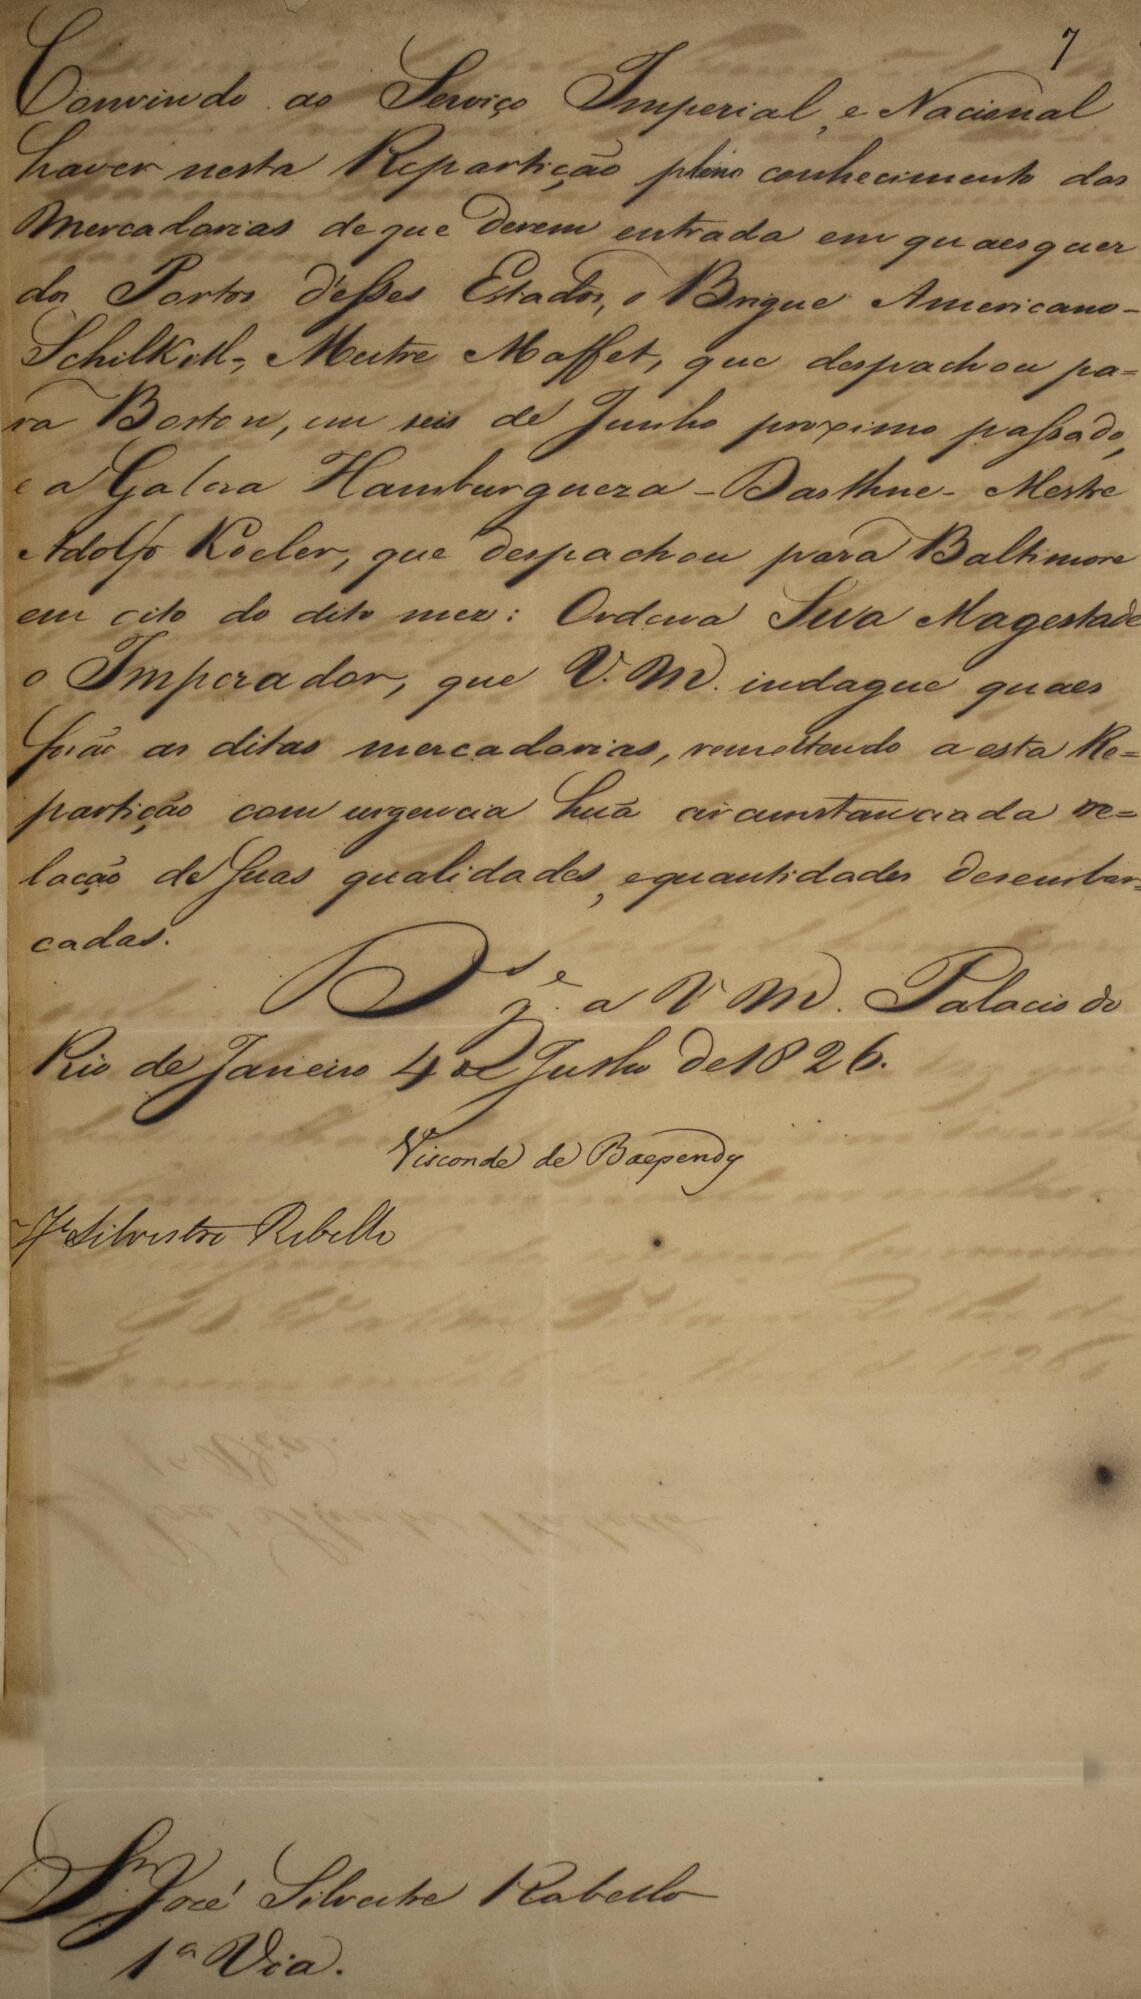 7
Convindo ao Serviço Imperial, e Nacional
haver nesta Repartição pleno conhecimento das
Mercadorias de que derem entrada em quaesquer
dos Portos d'esses Estados, o Brigue Americano-
Schilkill-, Mestre Maffet, que despachou pa=
ra Boston, em seis de Junho proximo passado,
e a Galera Hamburgueza - Dasthne - Mestre
Adolfo Kocler, que despachou para Baltimore
em oito do dito mez: Ordena Sua Magestade
o Imperador, que V. M. indague quaes
forão as ditas mercadorias, remettendo a esta Re=
partição com urgencia huã circumstanciada re=
lação de suas qualidades, e quantidades desembar=
cadas.
Ds ge a V M. Palacio do
Rio de Janeiro 4 de Julho de 1826.
Visconde de Baependy
Je Silvestre Rebello
Snr José Silvestre Rabello
1a Via.